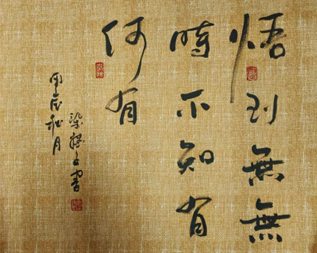 悟到無無
時不知有
何有
秋月
書